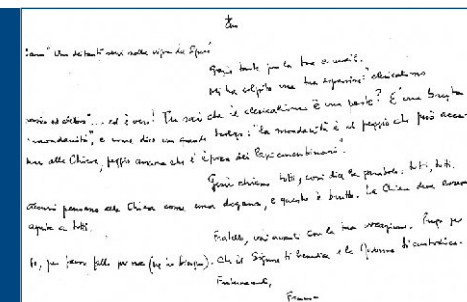 anni" un
sei nella vigna del Signore
Grazie tante per la tua e-mail.
Mi ha colpito una tua espressione: "clericalismo
... ed è vero! Tu sai che il clericalismo è una peste? È una brutta
"mondanità", e come dice un grande teologo: "la mondanità è il peggio che può acca-
alla Chiesa, peggio ancora che l'epoca dei Papi concubinari".
Gesù chiama tutti, così dice la parabola: tutti, tutti.
Alcuni pensano alla Chiesa come una dogana, e questo è brutto. La Chiesa deve essere
aperta a tutti.
Fratello, vai avanti con la tua vocazione. Prego per
te, per favore fallo per me (ne ho bisogno). Che il Signore ti benedica e la Madonna ti custodisca.
Fraternamente,